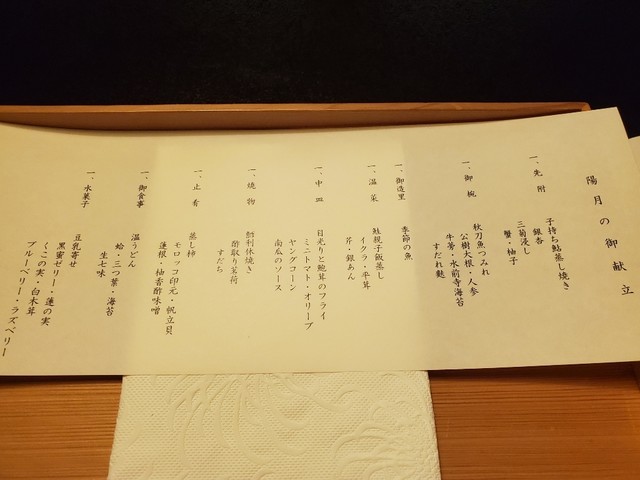 陽月の御献立
一、先附
子持ち鮎蒸し焼き
銀杏
三菊浸し
蟹・柚子
一、御椀
秋刀魚つみれ
公樹大根・人参
牛蒡・水前寺海苔
すだれ麩
一、御造里
季節の魚
一、温菜
鮭親子飯蒸し
イクラ・平茸
芹・銀あん
一、中皿
目光りと鮑茸のフライ
ミニトマト・オリーブ
ヤングコーン
南瓜のソース
一、焼物
鰤利休焼き
酢取り茗荷
すだち
一、止肴
蒸し柿
モロッコ印元・帆立貝
蓮根・柚香酢味噌
一、御食事
温うどん
蛤・三つ葉・海苔
生七味
一、水菓子
豆乳寄せ
黒蜜ゼリー・蓮の実
くこの実・白木茸
ブルーベリー・ラズベリー